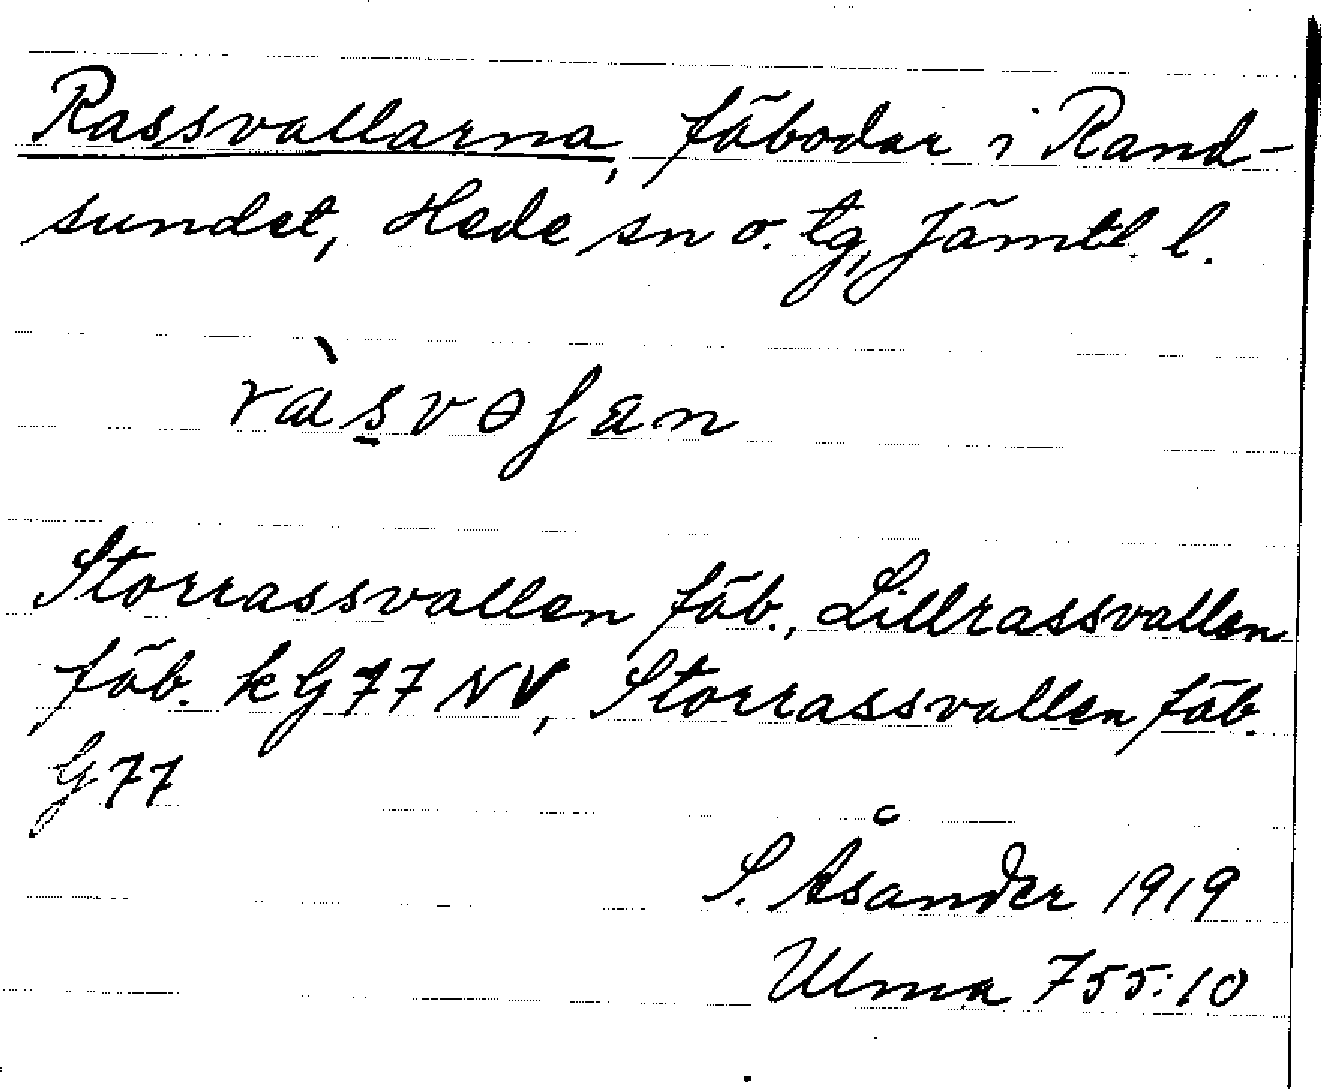 Rassvallarna, fäbodar i Rand-
sundet, Hede sn o. tg, Jämtl. l.
Storrassvallen fäb., Lillrassvallen
fäb. kG77 NV, Storrassvallen fäb.
G77
S. Åsander 1919
Ulma 755:10